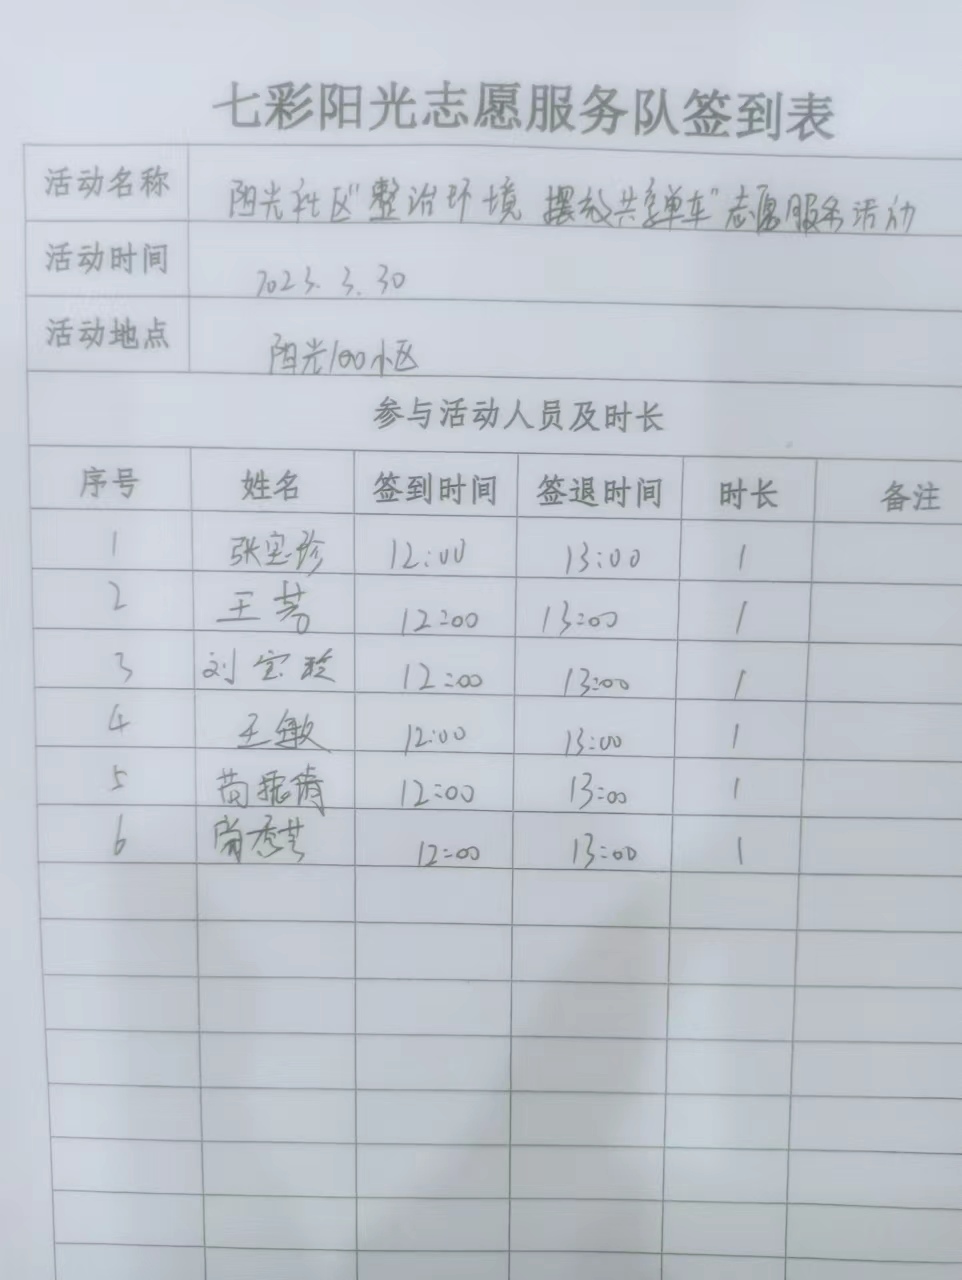 七彩阳光志愿服务队签到表
活动名称 阳光社区"整治环境 摆放共享单车"志愿服务活动
活动时间 2023.3.30
活动地点 阳光100小区
参与活动人员及时长
序号 姓名 签到时间 签退时间 时长 备注
1 张宝珍 12:00 13:00 1
2 王芳 12:00 13:00 1
3 刘宝玲 12:00 13:00 1
4 王敏 12:00 13:00 1
5 12:00 13:00 1
6 12:00 13:00 1